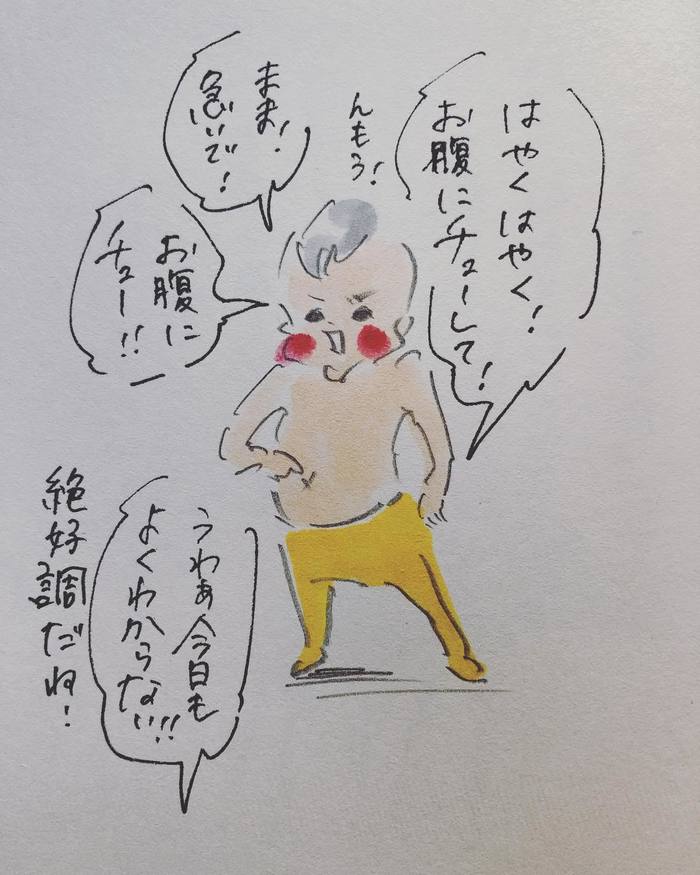 はやくはやく！
お腹にチューして！
んもう！
まま！
急いで！
お腹に
チュー！！
うわぁ今日も
よくわからない！！
絶好調だね！